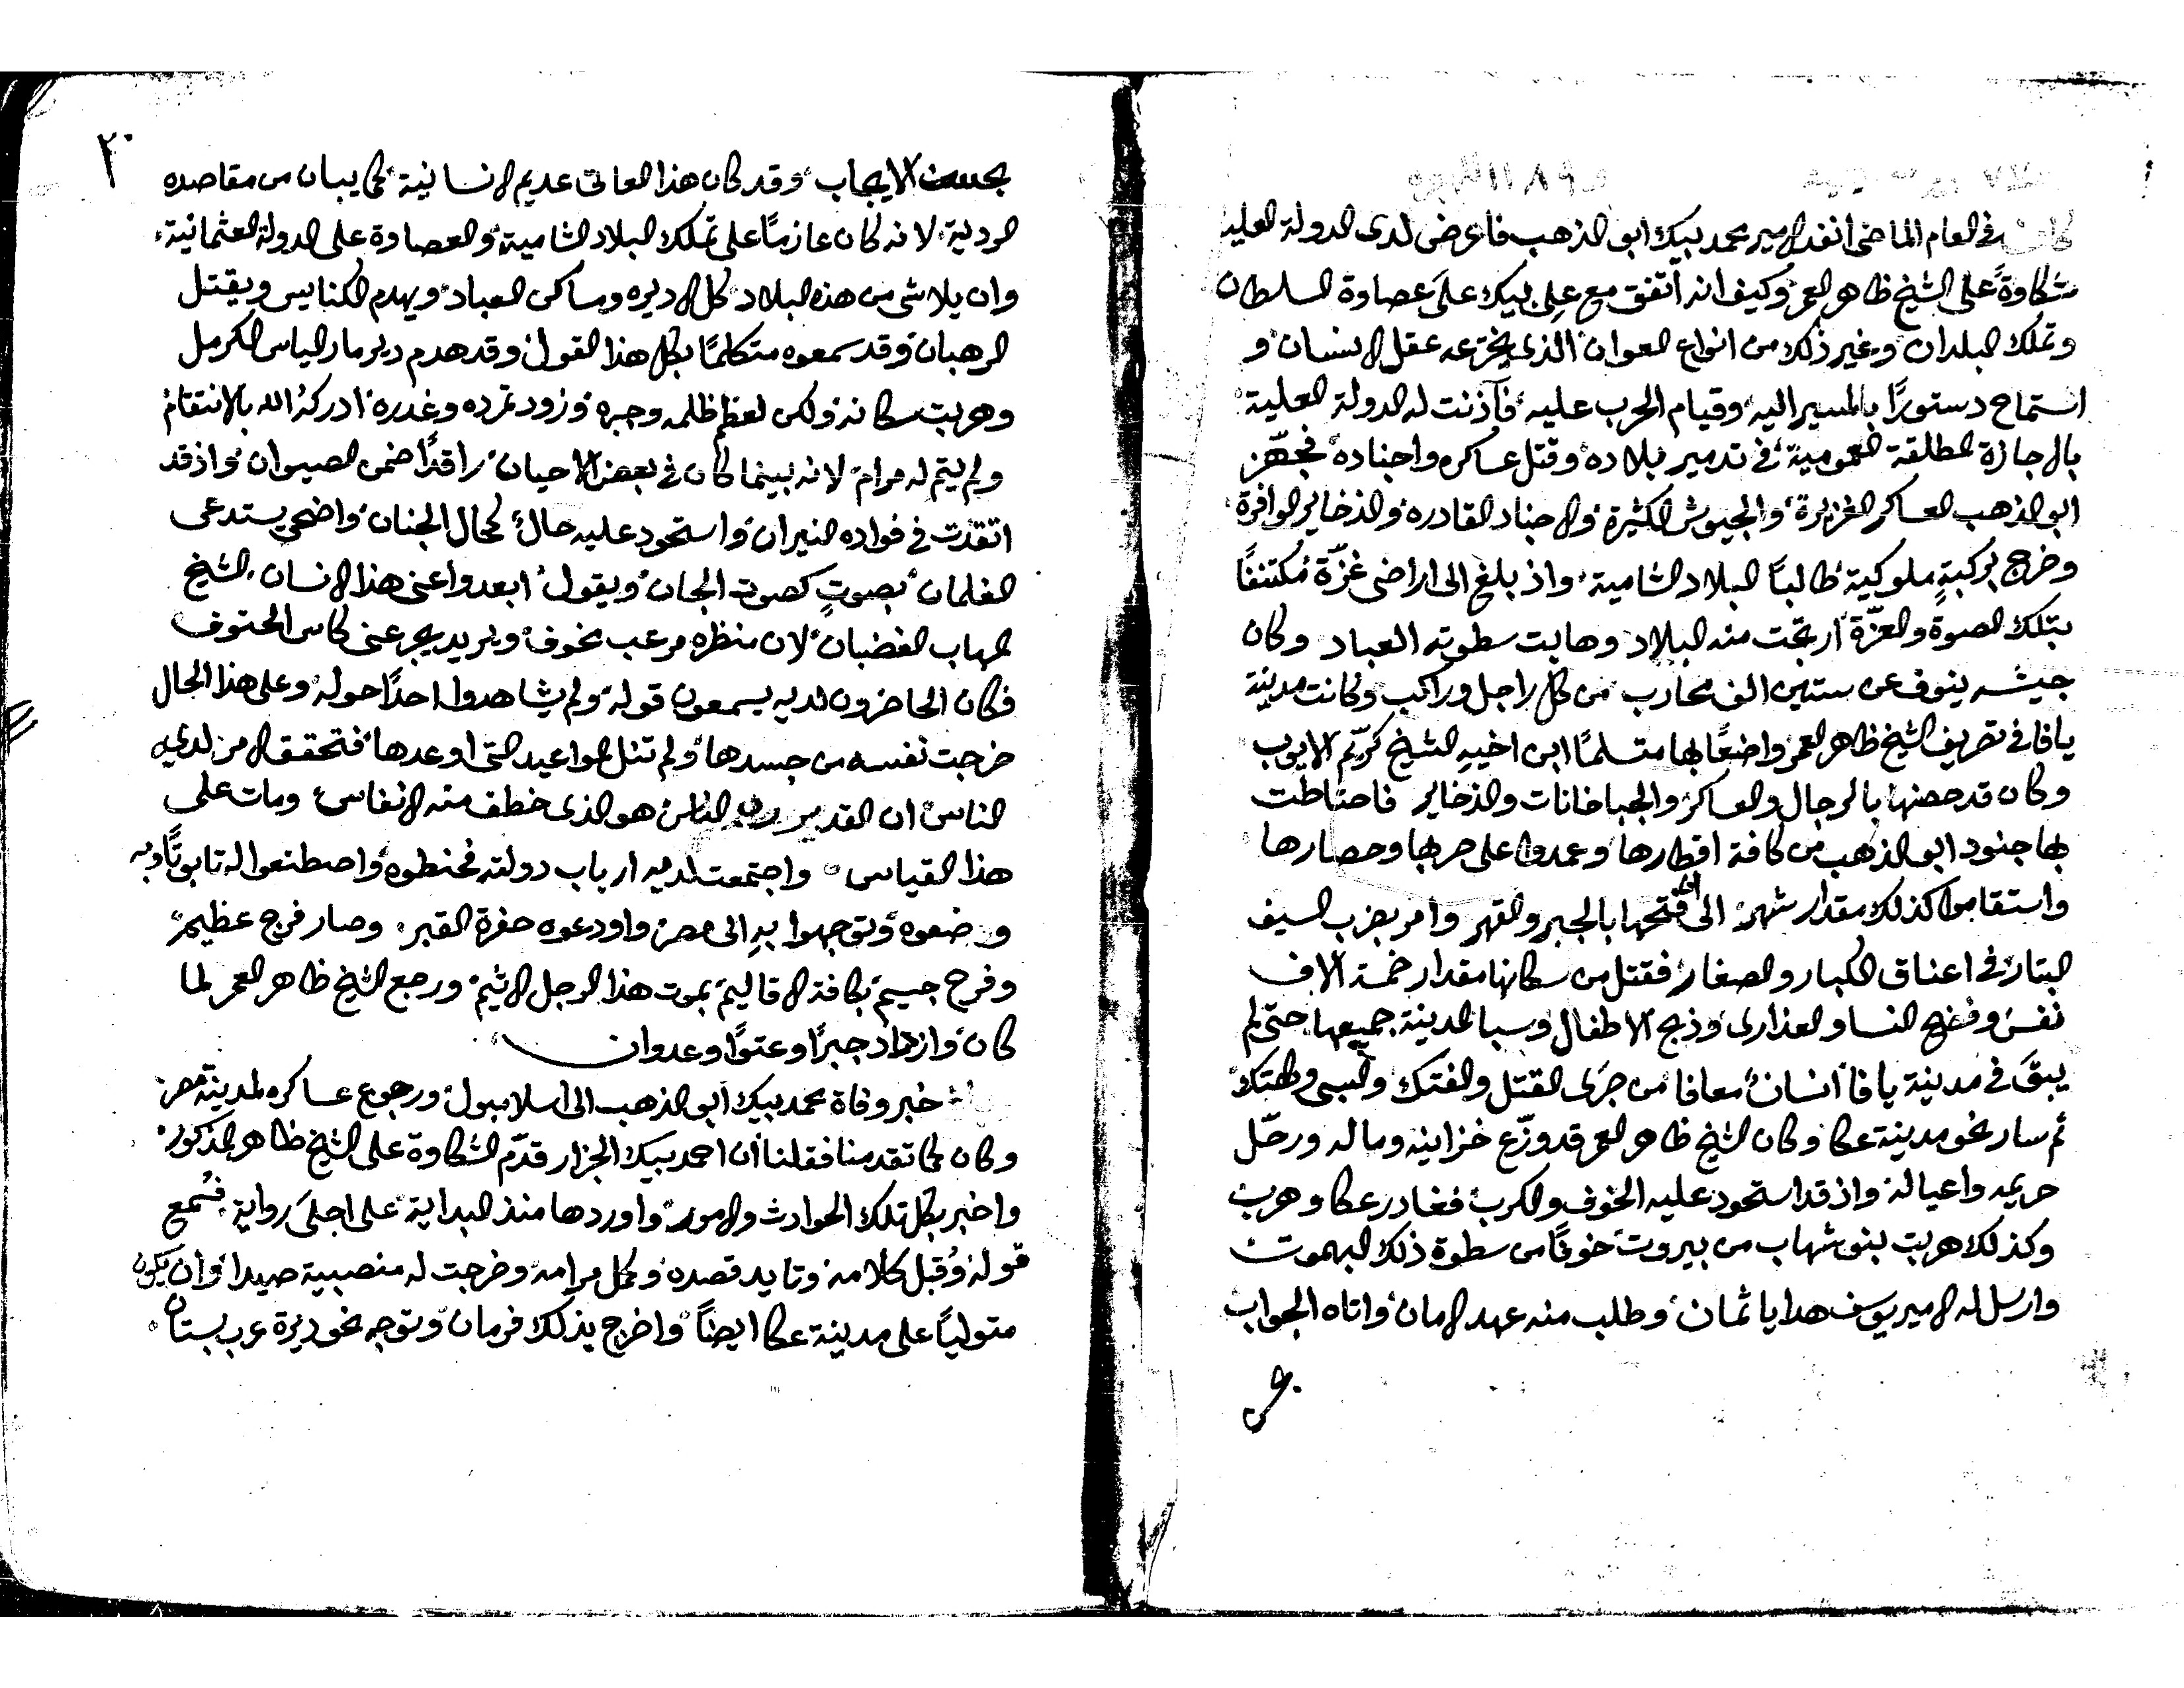 في العام الماضى انفد الامير محمد بيك ابو الذهب فاعرض لدى الدولة العليه
شكاوةً على الشيخ ظاهر العمر وكيف انه اتفق مع علي بيك على عصاوة السلطان
وتملك البلدان وغير ذلك من انواع العوان الذي يخترعه عقل الانسان و
استماح دستورًا بالمسير اليه وقيام الحرب عليه فآذنت له الدولة العلية
بالاجازة المطلقة العمومية في تدمير بلاده وقتل عساكره واجناده فجهّز
ابو الذهب العساكر الغزيرة والجيوش الكثيرة والاجناد القادره والذخاير الوافرة
وخرج بركبةٍ ملوكية طالبًا البلاد الشامية واذ بلغ الى اراضى غزّة مكتنفًا
بتلك الصوة والعزّة ارتجت منه البلاد وهابت سطوته العباد وكان
جيشه ينوف عن ستين الف محارب من كل راجل وراكب وكانت مدينة
يافا في تصريف الشيخ ظاهر العمر واضعًا بها متسلمًا ابن اخيهِ الشيخ كريّم الايوب
وكان قد حصنها بالرجال والعساكر والجباخانات والذخاير فاحتاطت
بها جنود ابو الذهب من كافة اقطارها وعمدوا على حربها وحصارها
واستقاموا كذلك مقدار شهر الى ان فتحها بالجبر والقهر وامر بضرب السيف
البتار في اعناق الكبار والصغار فقتل من سكانها مقدار خمسة الاف
نفس وفضح النسا والعذارى وذبح الاطفال وسبا المدينة جميعها حتى لم
يبقَ في مدينة يافا انسانٌ معافا من جَرَى القتل والفتك والسبى والهتك
ثم سار نحو مدينة عكا وكان الشيخ ظاهر العمر قد وزّع خزاينه وماله ورحّل
حريمه واعياله واذ قد استحود عليه الخوف والكرب فغادر عكا وهرب
وكذلك هربت بنو شهاب من بيروت خوفًا من سطوة ذلك البهموت
وارسل له الامير يوسف هدايا ثمان وطلب منه عهد الامان واتاه الجواب
٢٠
بحسن الايجاب وقد كان هذا العاتى عديم الانسانية كما يبان من مقاصده
الردية لانه كان عازمًا على تملك البلاد الشامية والعصاوة على الدولة العثمانية
وان يلاشى من هذه البلاد كل الاديره ومساكن العباد ويهدم الكنايس ويقتل
الرهبان وقد سمعوه متكلمًا بكل هذا القول وقد هدم دير مار الياس الكرمل
وهربت سكانه ولكن لعظم ظلمه وجبره وزود تمرده وغدره ادركهُ الله بالانتقام
ولم يتم له مرام لانه بينما كان في بعض الاحيان راقدًا ضمن الصيوان واذ قد
اتقدت في فواده النيران واستحود عليه حالٌ كحال الجنان واضحى يستدعى
الغلمان بصوتٍ كصوت الجان ويقول ابعدوا عنى هذا الانسان الشيخ
المهاب الغضبان لان منظره مرعب مخوف ويريد يجرعنى كاس الحتوف
فكان الحاضرون لديه يسمعون قوله ولم يشاهدوا احدًا حوله وعلى هذا الحال
خرجت نفسه من جسدها ولم تنل المواعيد التى اوعدها فتحقق الامر لدى
الناس ان القدير رب الناس هو الذى خطف منه الانفاس ومات على
هذا القياس واجتمعت لديه ارباب دولته فحنطوه واصطنعوا له تابوتًا وبه
وضعوه وتوجهوا بهِ الى مصر واودعوه حفرة القبر وصار فرج عظيم
وفرح جسيم بكافة الاقاليم بموت هذا الرجل الاثيم ورجع الشيخ ظاهر العمر لما
كان وازداد جبرًا وعتوًا وعدوان
خبر وفاة محمد بيك ابو الذهب الى اسلامبول ورجوع عساكره لمدينة مصر
وكان كما تقدم منا فقلنا ان احمد بيك الجزار قدّم الشكاوة على الشيخ ظاهر المذكور
واخبر بكل تلك الحوادث والامور واوردها منذ البداية على اجلى رواية فسُمع
قوله وقُبل كلامه وتايد قصده وكمل مرامه وخرجت له منصبية صيدا وان يكون
متوليًا على مدينة عكا ايضًا واخرج بذلك فرمان وتوجه نحو ديرة عربستان